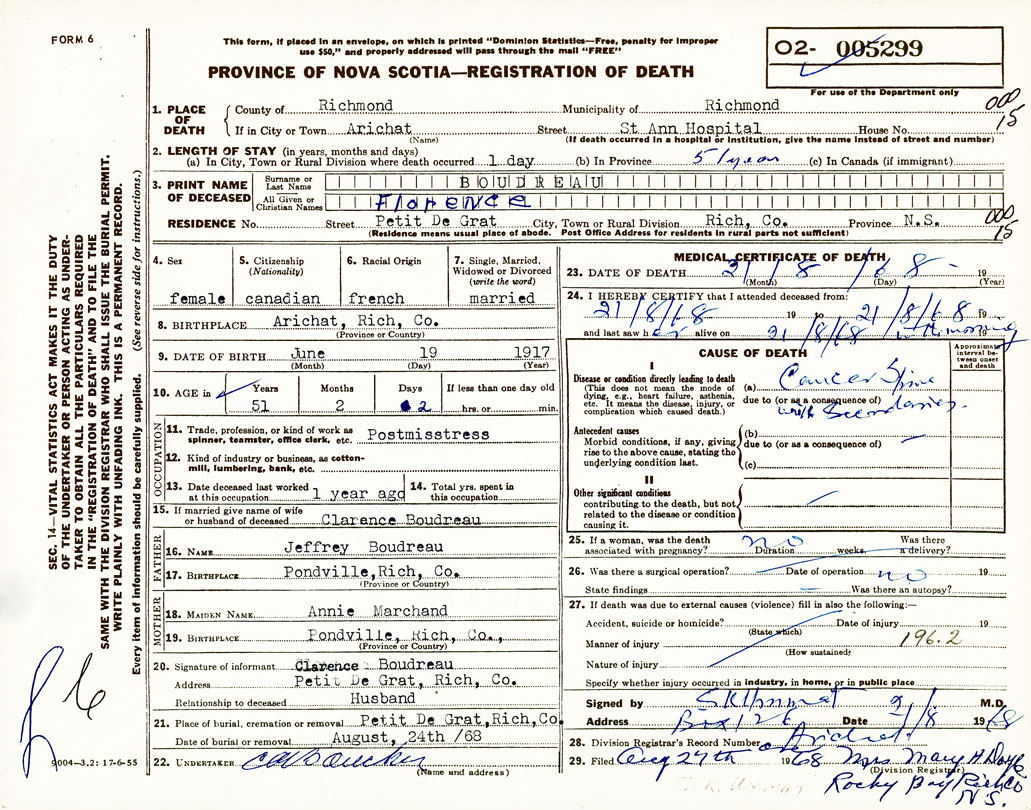 FORM 6
This form, if placed in an envelope, on which is printed "Dominion Statistics—Free, penalty for improper
use $50," and properly addressed will pass through the mail "FREE"
PROVINCE OF NOVA SCOTIA—REGISTRATION OF DEATH
02- 005299
For use of the Department only
000
15
1. PLACE OF DEATH
County of Richmond Municipality of Richmond
If in City or Town Arichat Street St Ann Hospital House No.
(Name) (If death occurred in a hospital or institution, give the name instead of street and number)
2. LENGTH OF STAY (in years, months and days)
(a) In City, Town or Rural Division where death occurred 1 day (b) In Province 51 year (c) In Canada (if immigrant)
3. PRINT NAME OF DECEASED
Surname or Last Name BOUDREAU
All Given or Christian Names Florence
RESIDENCE No. Street Petit De Grat City, Town or Rural Division Rich, Co. Province N.S.
(Residence means usual place of abode. Post Office Address for residents in rural parts not sufficient)
000
15
4. Sex
female
5. Citizenship
(Nationality)
canadian
6. Racial Origin
french
7. Single, Married,
Widowed or Divorced
(write the word)
married
8. BIRTHPLACE Arichat, Rich, Co.
(Province or Country)
9. DATE OF BIRTH June 19 1917
(Month) (Day) (Year)
10. AGE in
Years Months Days If less than one day old
51 2 2 hrs. or min.
OCCUPATION
11. Trade, profession, or kind of work as
spinner, teamster, office clerk, etc. Postmisstress
12. Kind of industry or business, as cotton-
mill, lumbering, bank, etc.
13. Date deceased last worked
at this occupation 1 year ago
14. Total yrs. spent in
this occupation
15. If married give name of wife
or husband of deceased Clarence Boudreau
FATHER
16. NAME Jeffrey Boudreau
17. BIRTHPLACE Pondville,Rich, Co.
(Province or Country)
MOTHER
18. MAIDEN NAME Annie Marchand
19. BIRTHPLACE Pondville, Rich, Co.,
(Province or Country)
20. Signature of informant Clarence Boudreau
Address Petit De Grat, Rich, Co.
Relationship to deceased Husband
21. Place of burial, cremation or removal Petit De Grat,Rich,Co
Date of burial or removal August, 24th /68
22. UNDERTAKER
(Name and address)
MEDICAL CERTIFICATE OF DEATH
23. DATE OF DEATH 21 / 8 / 68 19
(Month) (Day) (Year)
24. I HEREBY CERTIFY that I attended deceased from:
21/8/68 19 to 21/8/68 19
and last saw her alive on 21/8/68 in the morning 19
CAUSE OF DEATH
Approximate
interval be-
tween onset
and death
I
Disease or condition directly leading to death
(This does not mean the mode of
dying, e.g., heart failure, asthenia,
etc. It means the disease, injury, or
complication which caused death.)
(a) Cancer Spine
due to (or as a consequence of)
with Secondaries.
Antecedent causes
Morbid conditions, if any, giving
rise to the above cause, stating the
underlying condition last.
(b)
due to (or as a consequence of)
(c)
II
Other significant conditions
contributing to the death, but not
related to the disease or condition
causing it.
25. If a woman, was the death
associated with pregnancy? no Duration weeks. Was there
a delivery?
26. Was there a surgical operation? Date of operation no 19
State findings Was there an autopsy?
27. If death was due to external causes (violence) fill in also the following:—
Accident, suicide or homicide? Date of injury 19
(State which)
Manner of injury 196.2
(How sustained)
Nature of injury
Specify whether injury occurred in industry, in home, or in public place
Signed by M.D.
Address Box 126 Date 21/8 1968
Arichat
28. Division Registrar's Record Number
29. Filed Aug 27th 1968 Mrs Mary A Doyle
(Division Registrar)
Rocky Bay Rich Co
N.S.
SEC. 14—VITAL STATISTICS ACT MAKES IT THE DUTY
OF THE UNDERTAKER OR PERSON ACTING AS UNDER-
TAKER TO OBTAIN ALL THE PARTICULARS REQUIRED
IN THE "REGISTRATION OF DEATH" AND TO FILE THE
SAME WITH THE DIVISION REGISTRAR WHO SHALL ISSUE THE BURIAL PERMIT.
WRITE PLAINLY WITH UNFADING INK. THIS IS A PERMANENT RECORD.
Every item of information should be carefully supplied. (See reverse side for instructions.)
9004—3.2: 17-6-55